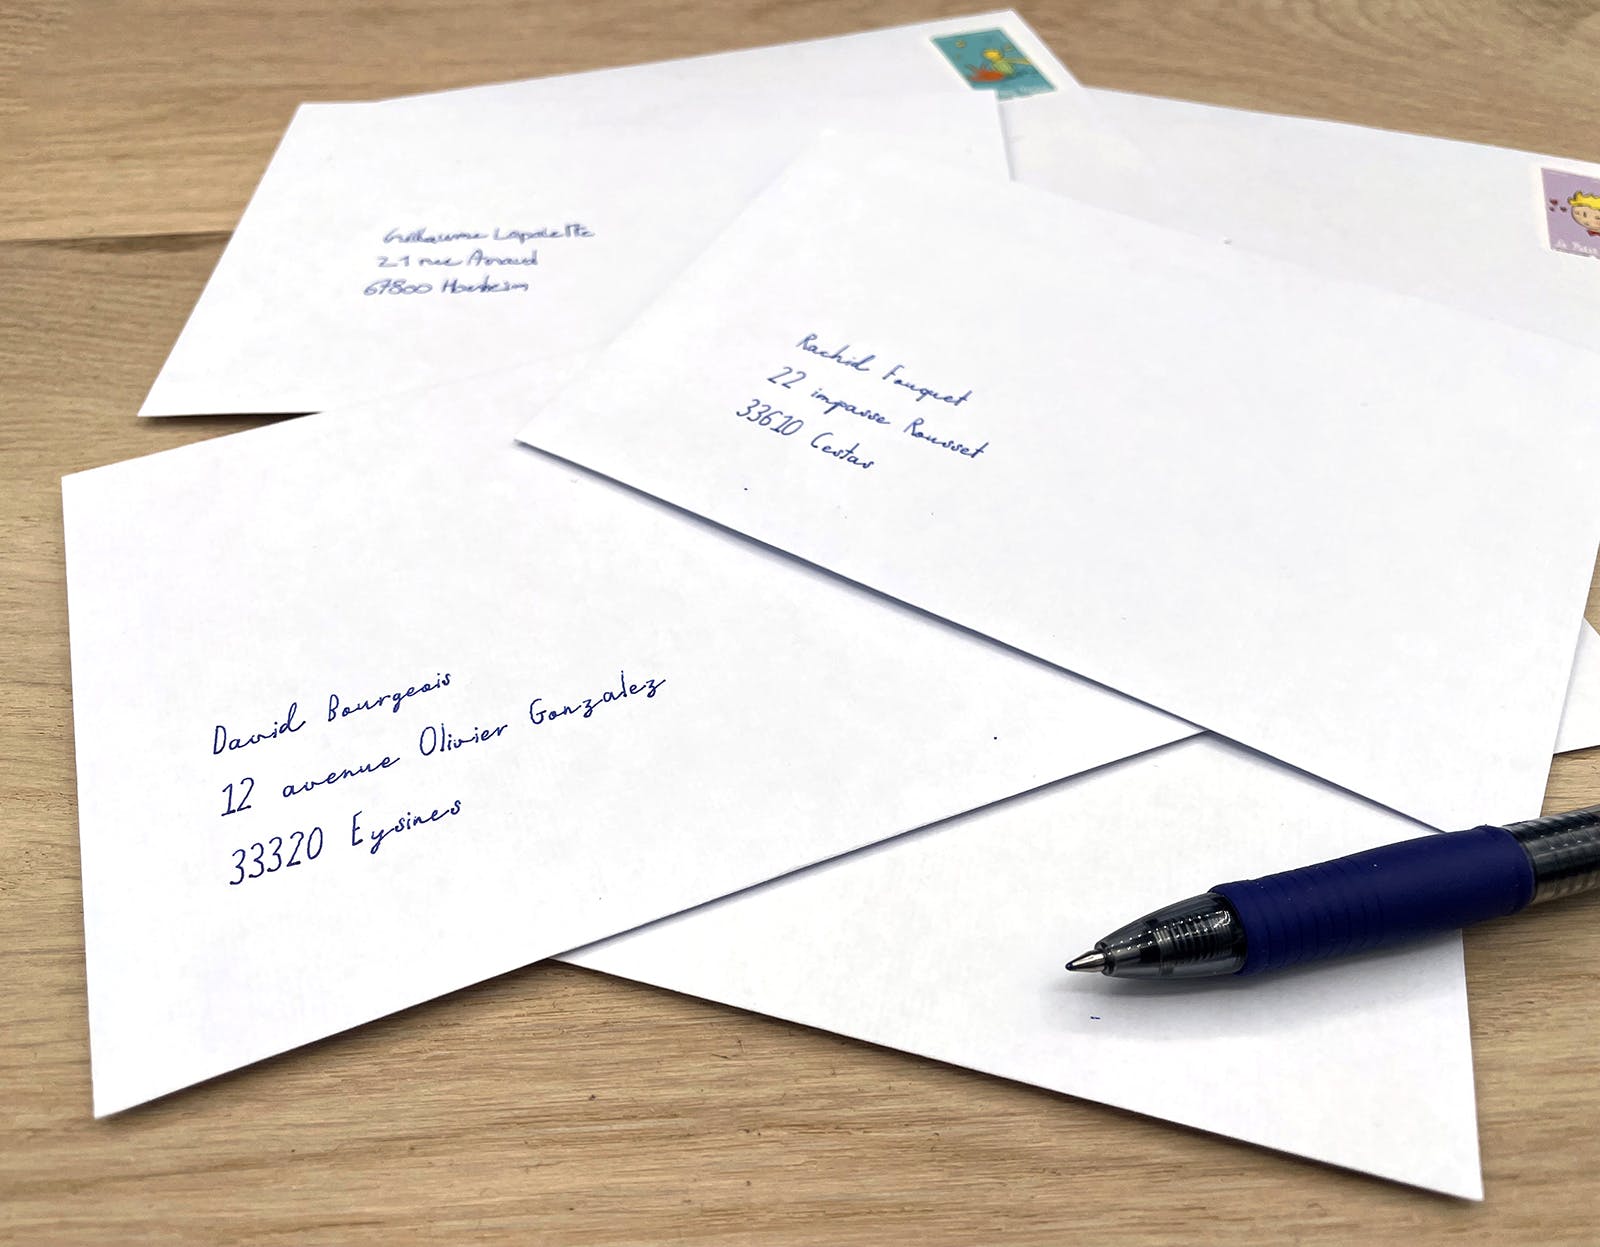 Guillaume Lapalette
21 rue Arnaud
67800 Hœnheim
Rachid Fouquet
22 impasse Rousset
33610 Cestas
David Bourgeois
12 avenue Olivier Gonzalez
33320 Eysines
Le Petit